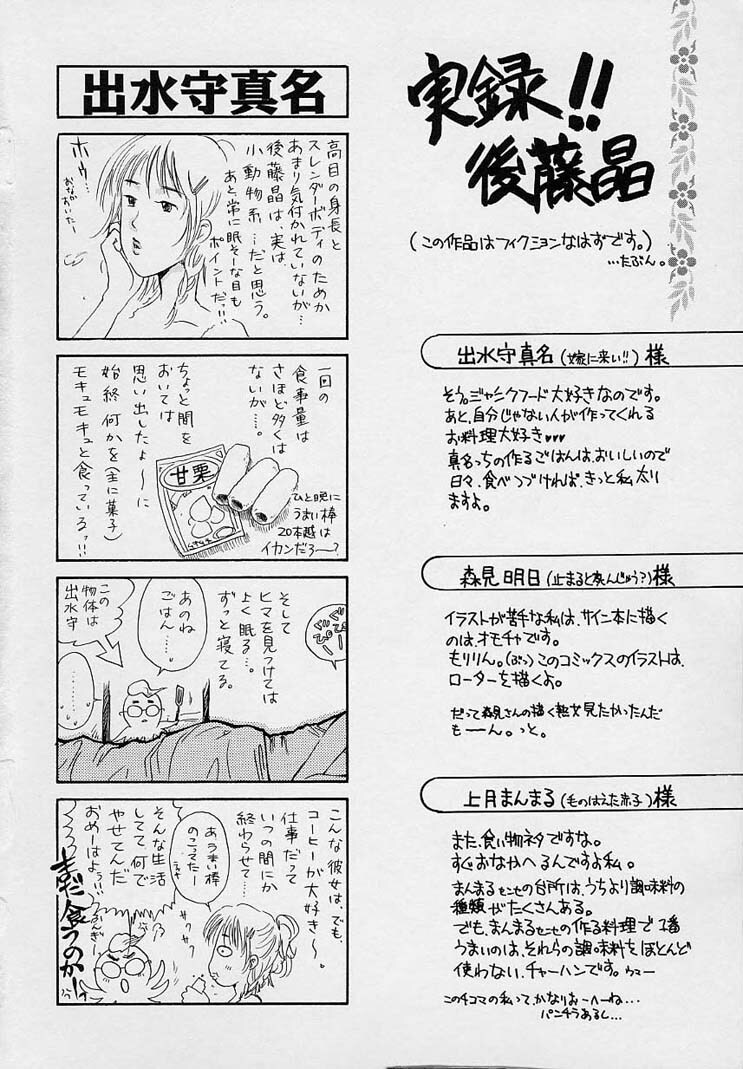 実録!!
後藤晶
(この作品はフィクションなはずです。)
…たぶん。
出水守真名(嫁に来い!!)様
そう。ジャンクフード大好きなのです。
あと、自分じゃない人が作ってくれる
お料理大好き♥♥♥
真名っちの作るごはんは、おいしいので
日々、食べつづければ、きっと私太り
ますよ。
森見明日(止まると死んじゅう?)様
イラストが苦手な私は、サイン本に描く
のは、オモチャです。
もりりん。(ぶっ)このコミックスのイラストは、
ローターを描くよ。
だって森見さんの描く熟女見たかったんだ
もーん。っと。
上月まんまる(毛のはえた赤子)様
また、食い物ネタですな。
すぐおなかへるんですよ私。
まんまるセンセの台所は、うちより調味料の
種類がたくさんある。
でも、まんまるセンセの作る料理で1番
うまいのは、それらの調味料をほとんど
使わない、チャーハンです。ウマー
この4コマの私って、かなりおーへーね…
パンチラあるし…
出水守真名
高目の身長と
スレンダーボディのためか
あまり気付かれていないが…
後藤晶は、実は、
小動物系…だと思う。
あと、常に眠そーな目も
ポイントだっ!!
ホゥ…
おなかすいたー
一回の
食事量は
さほど多くは
ないが…。
ちょっと間を
おいては
思い出したよ〜に
始終何かを(主に菓子)
モキュモキュと食っているっ!!!
甘栗
ひと晩に
うまい棒
20本越は
イカンだろー?
ぐぴー
ぐぴー
そして
ヒマを見つけては
よく眠る…。
ずっと寝てる。
あのね
ごはん……。
この
物体は
出水守
……。
こんな彼女は、でも、
コーヒーが大好き〜。
仕事だって
いつの間にか
終わらせて…
あうまい棒
のこってたー
サクサク
そんな生活
してて、何で
やせてんだ
おめーはよぅ!!
まだ食うのかーっ